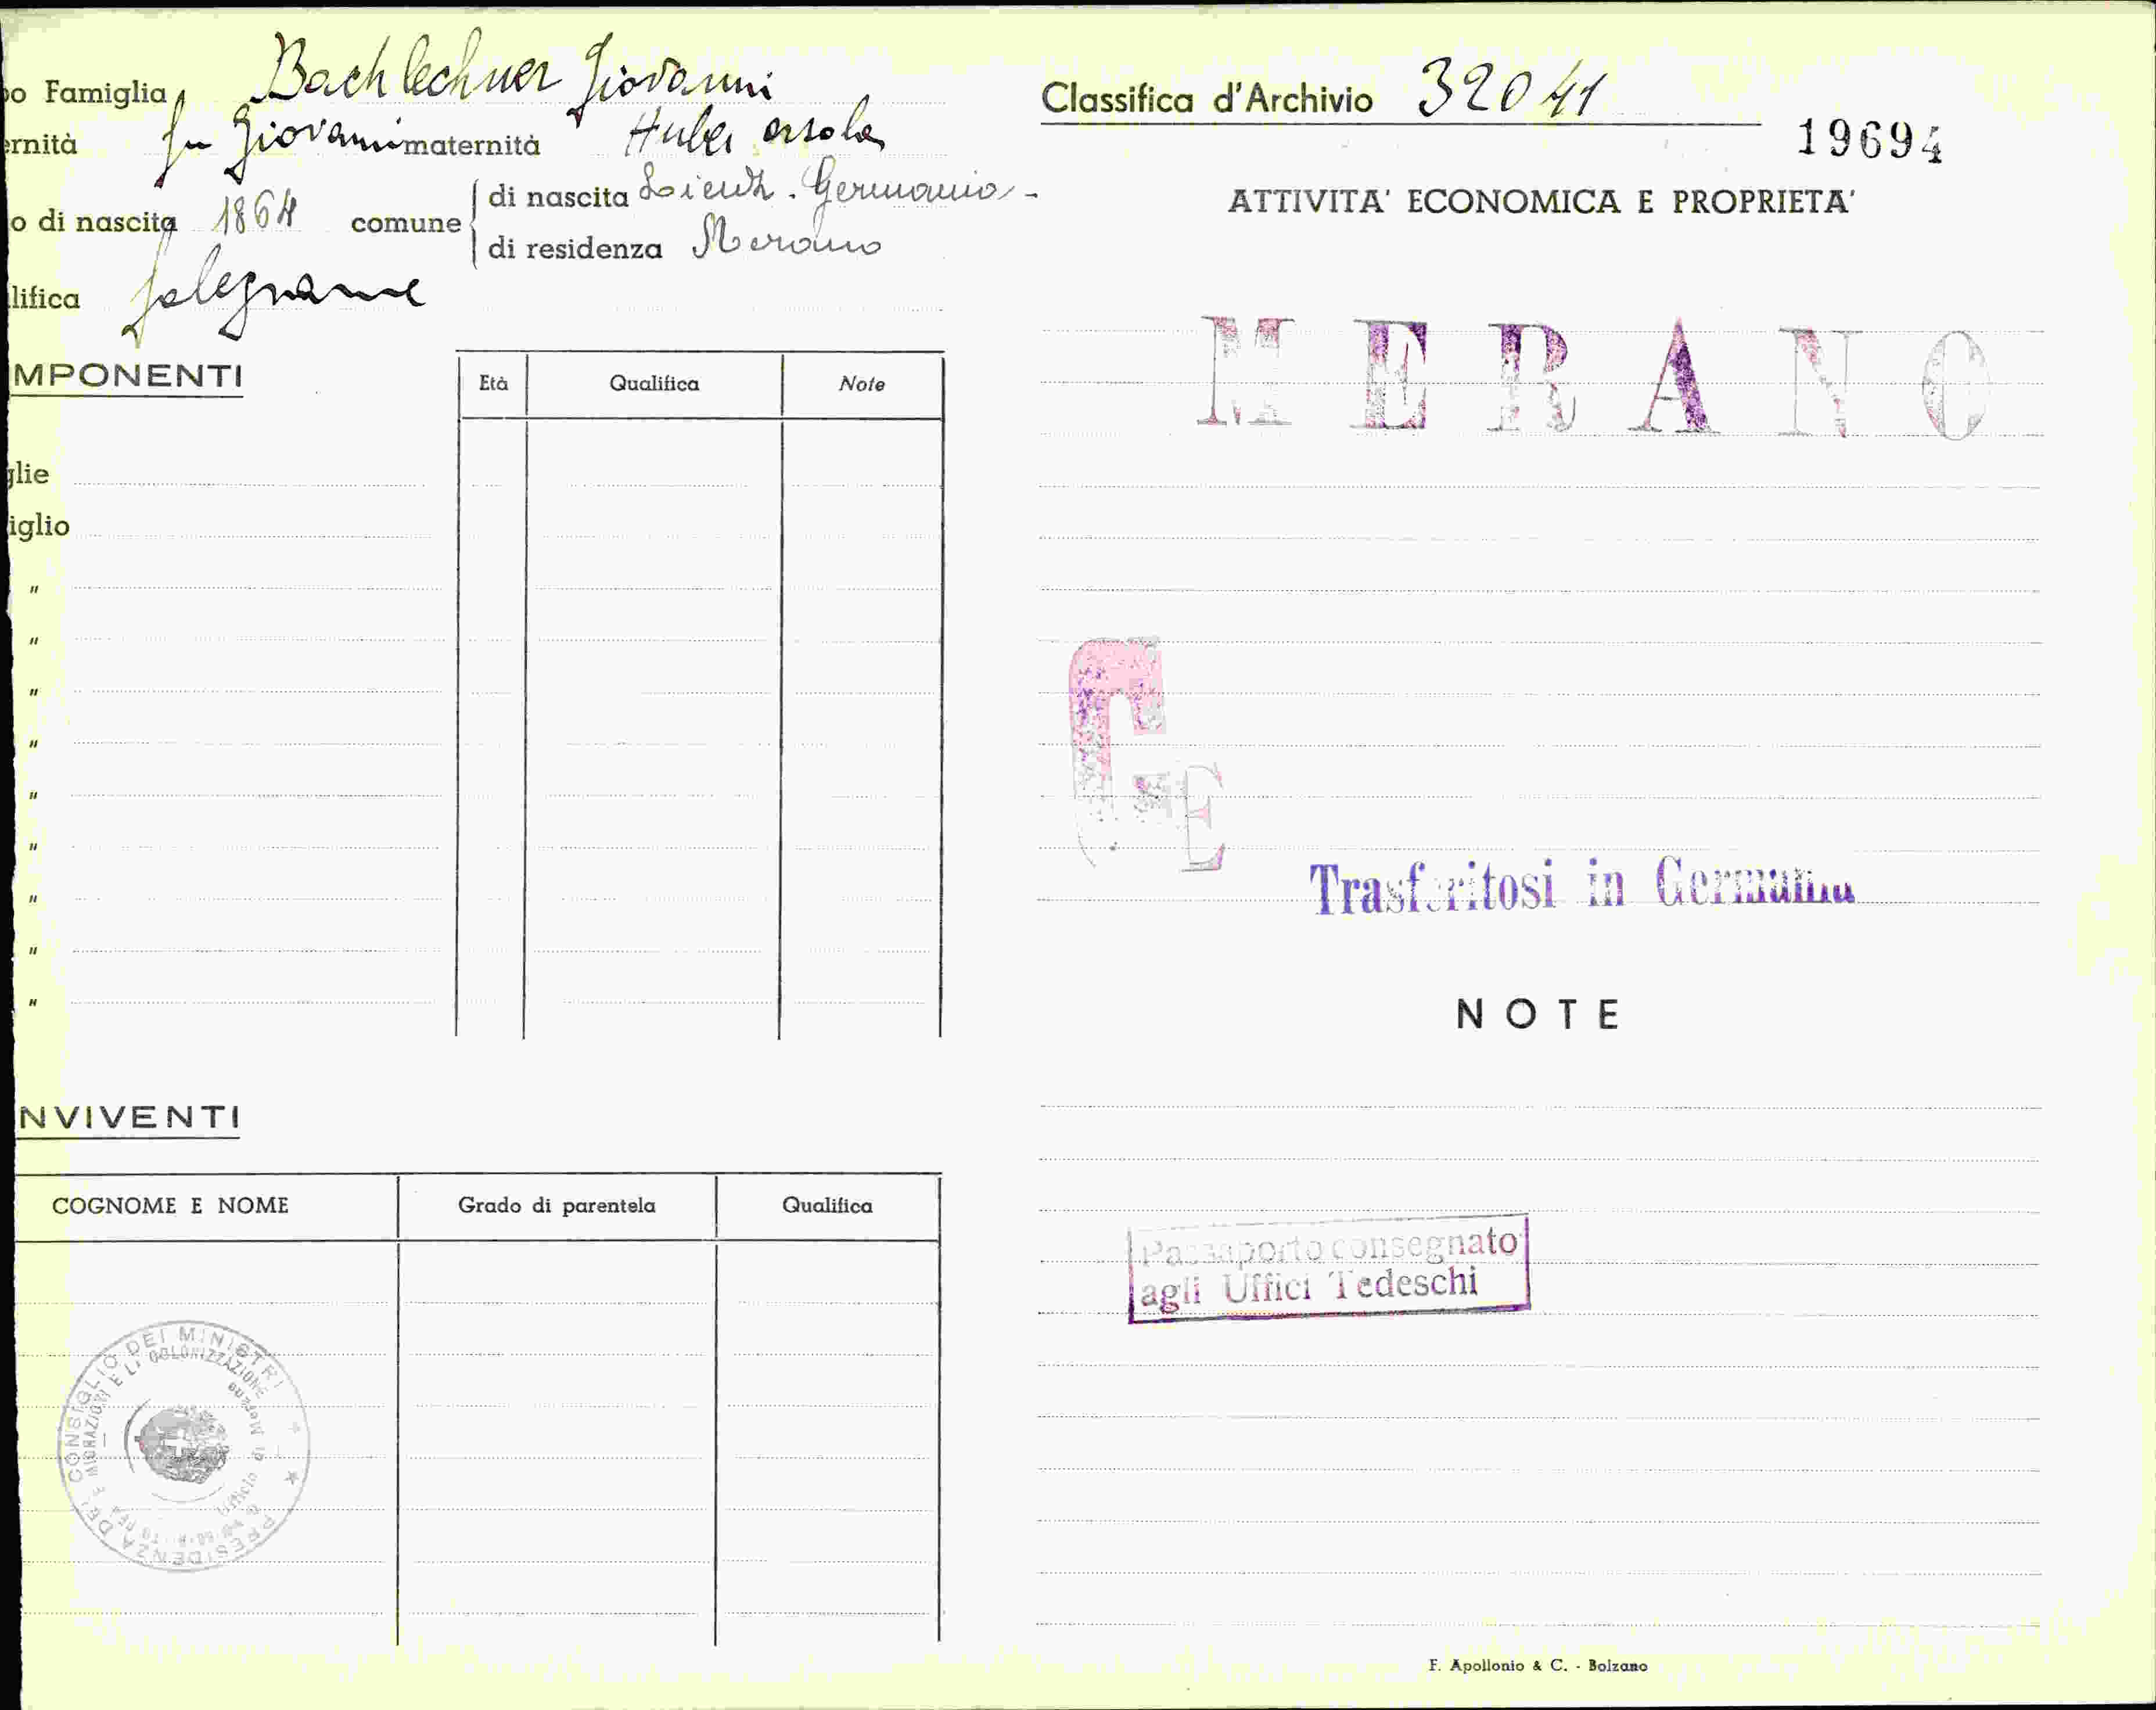 o Famiglia Bachlechner Giovanni
ernità fu Giovanni maternità Huber orsola
o di nascita 1864 comune di nascita Lienz. Germania -
di residenza Merano
lifica falegname
MPONENTI
Età Qualifica Note
glie
iglio
"
"
"
"
"
"
"
"
"
NVIVENTI
COGNOME E NOME Grado di parentela Qualifica
PRESIDENZA DEL CONSIGLIO DEI MINISTRI
MIGRAZIONI E LA COLONIZZAZIONE
Ufficio di Merano
Classifica d'Archivio 32041
19694
ATTIVITA' ECONOMICA E PROPRIETA'
MERANO
G
E
Trasferitosi in Germania
NOTE
Passaporto consegnato
agli Uffici Tedeschi
F. Apollonio & C. - Bolzano